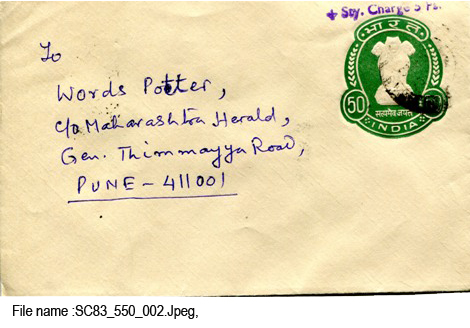 + Sty. Charge 5 Ps.
भारत
50
सत्यमेव जयते
INDIA
To
Words Potter,
C/o Maharashtra Herald,
Gen. Thimmayya Road,
PUNE - 411001
File name :SC83_550_002.Jpeg,